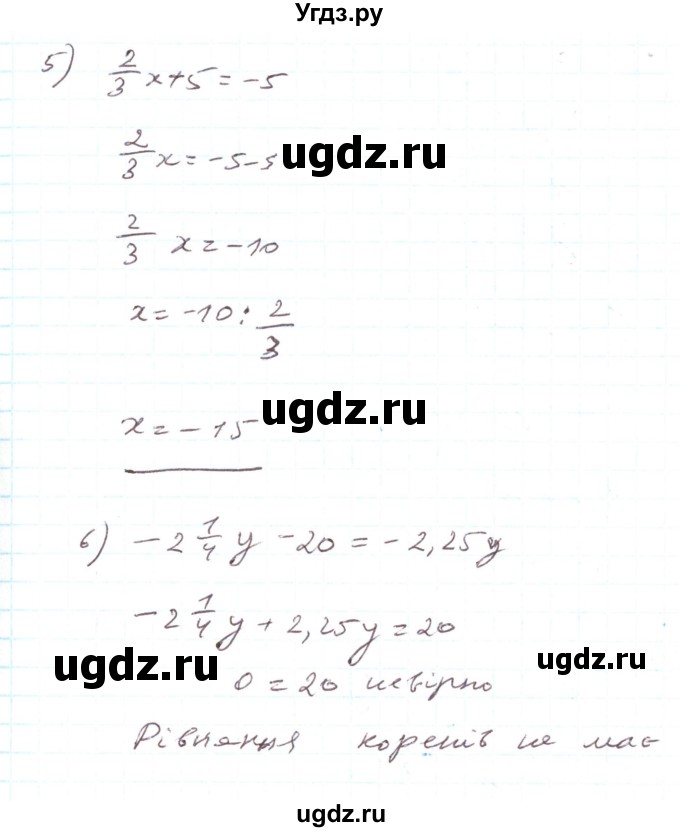 Угдз.ру
5) 2/3 x + 5 = -5
2/3 x = -5-5
ugdz.ru
2/3 x = -10
x = -10 : 2/3
ugdz.ru
x = -15
6) -2 1/4 y - 20 = -2,25y
-2 1/4 y + 2,25y = 20
ugdz.ru
ugdz.ru
0 = 20 невірно
Рівняння коренів не має
ugdz.ru